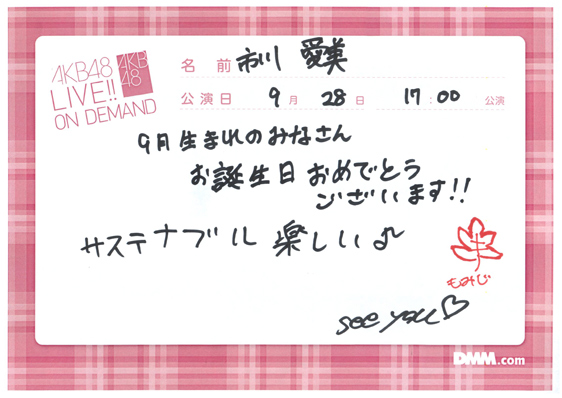 AKB48
LIVE!!
ON DEMAND
AKB
48
名前 市川 愛美
公演日 9月 28日 17:00 公演
9月生まれのみなさん
お誕生日おめでとう
ございます!!
サステナブル 楽しい♪
もみじ
see you♡
DMM.com